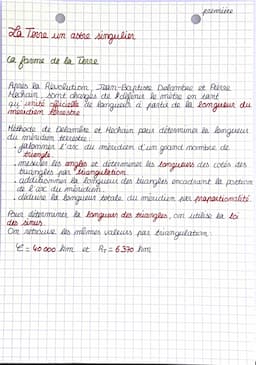 première
La Terre un astre singulier
La forme de la Terre
Après la Révolution, Jean-Baptiste Delambre et Pierre
Méchain, sont chargés de définir le mètre en tant
qu'unité officielle de longueur à partir de la longueur du
méridien terrestre
Méthode de Delambre et Méchain pour déterminer la longueur
du méridien terrestre:
. jalonner l'arc du méridien d'un grand nombre de
triangle
. mesurer les angles et déterminer les longueurs des cotés des
triangles par triangulation
. additionner la longueur des triangles encadrant la portion
de l'arc du méridien.
. déduire la longueur totale du méridien par proportionalité
Pour déterminer la longueur des triangles, on utilise la loi
des sinus.
On retrouve les mêmes valeurs par triangulation:
C = 40 000 km et RT = 6 370 km